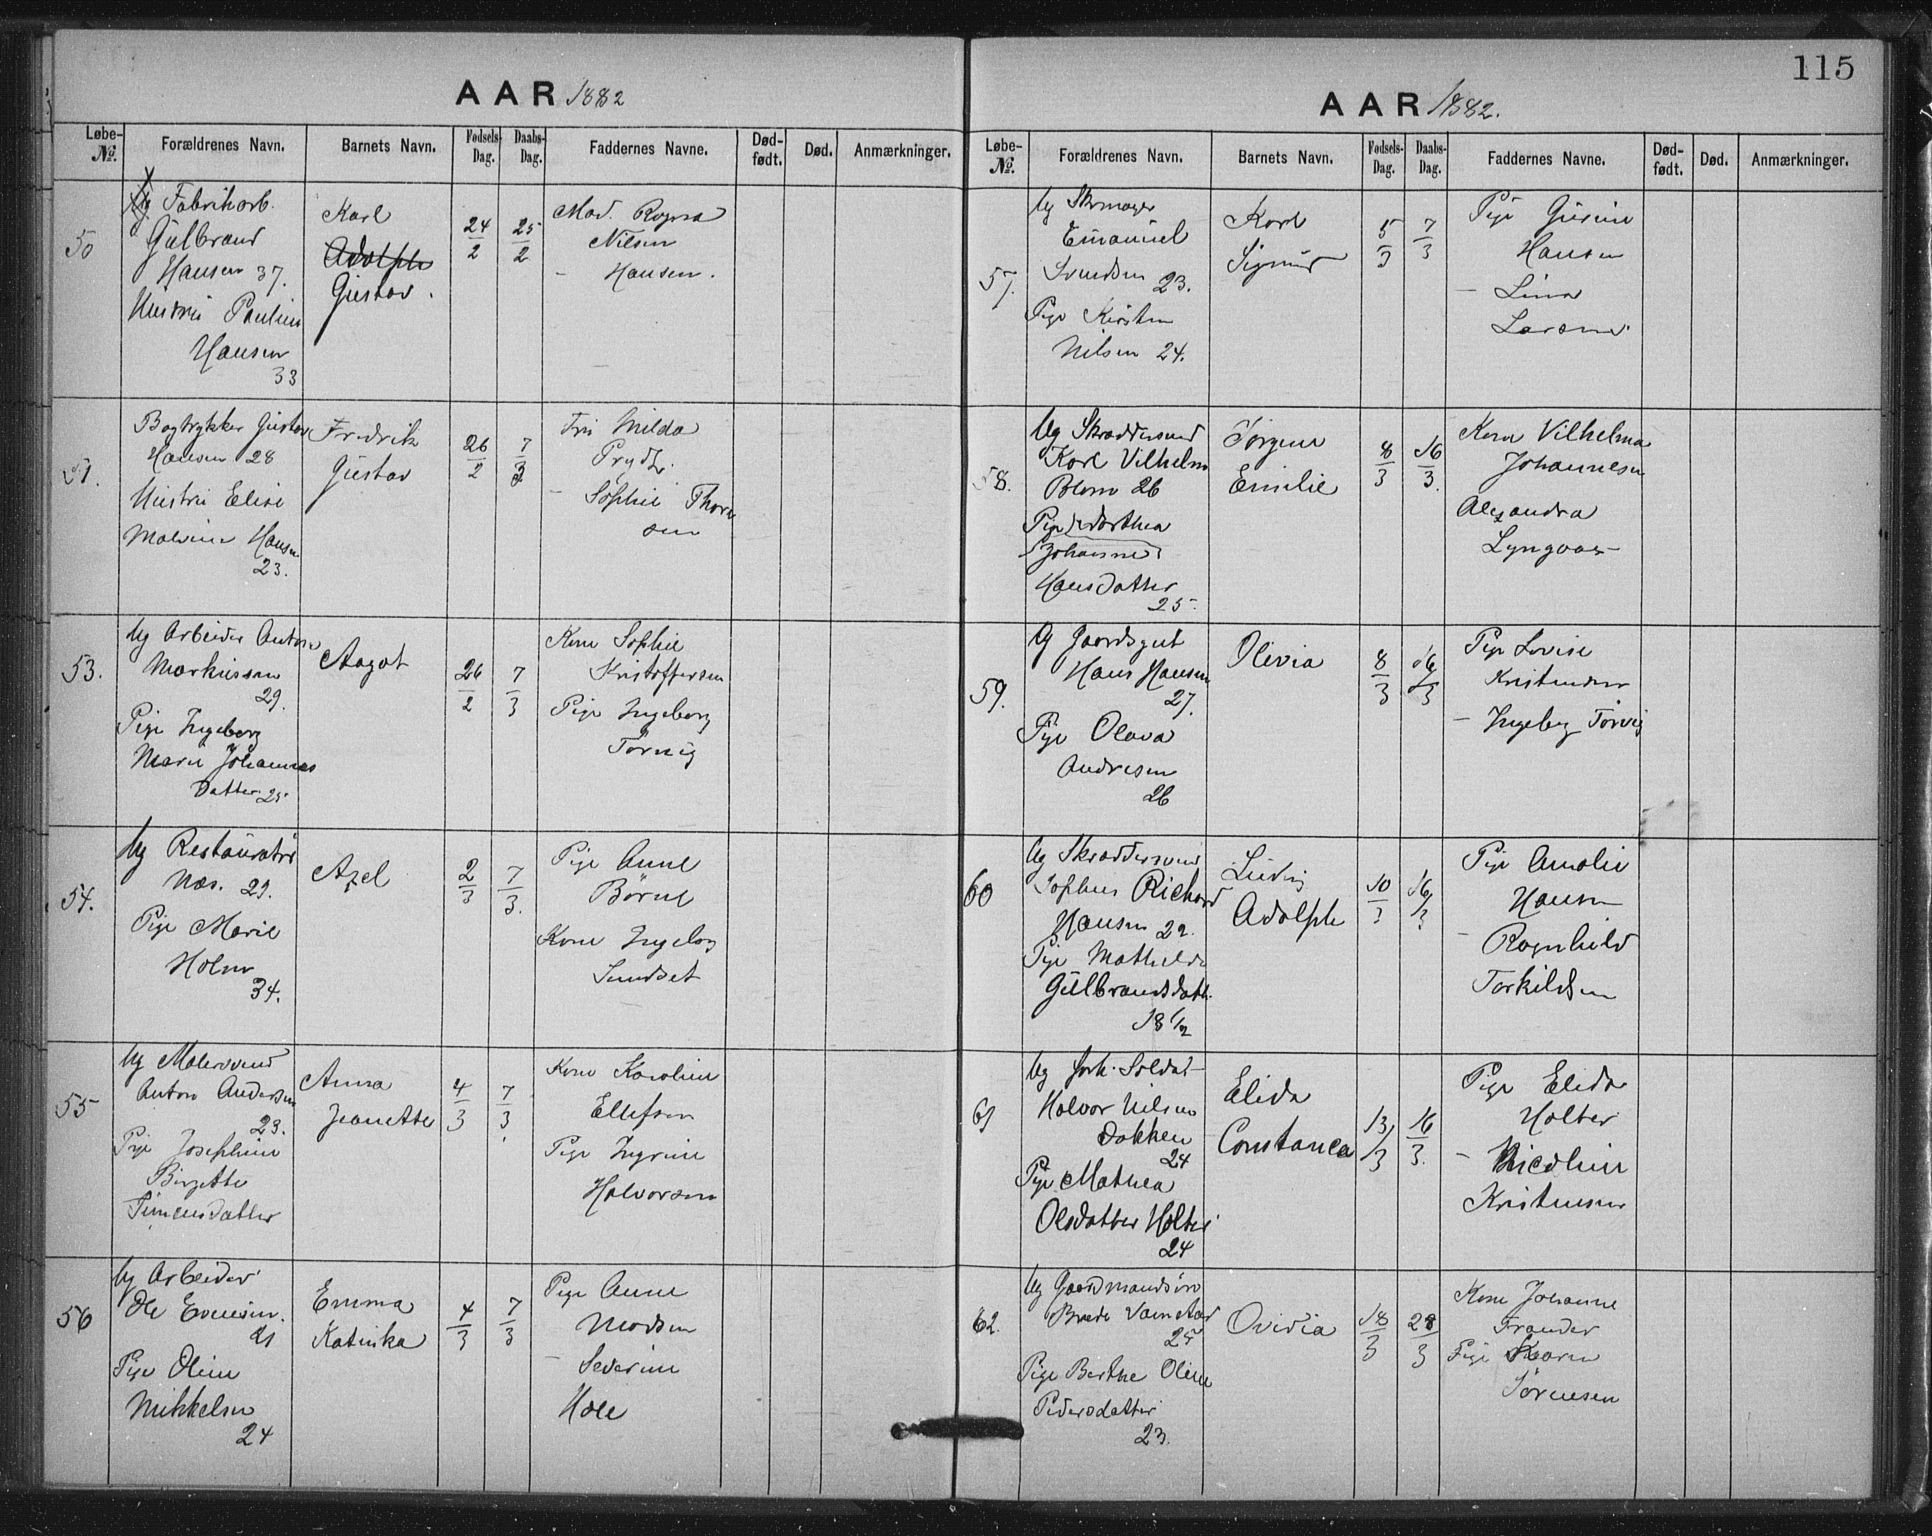 115
AAR 1882
Løbe-No.
Forældrenes Navn.
Barnets Navn.
Fødsels-Dag.
Daabs-Dag.
Faddernes Navne.
Død-født.
Død.
Anmærkninger.
50
Ug Fabrikarb.
Gulbrand
Hansen 37.
Hustru Pauline
Hansen
33
Karl
Adolph
Gustav.
24/2
25/2
Mad. Ragna
Nilsen
– Hansen.
51.
Bogtrykker Gustav
Hansen 28
Hustru Elise
Malvine Hansen
23.
Fredrik
Gustav
26/2
7/3
Fru Milda
Prydz.
– Sophie Thor
sen
53.
Ug Arbeider Anton
Markussen
29.
Pige Ingeborg
Marie Johannes
Datter 25
Aagot
26/2
7/3
Kone Sophie
Kristoffersen
Pige Ingeborg
54.
Ug Restauratør
Næs. 29.
Pige Marie
Holm
34.
Axel
2/3
7/3.
Pige Anne
Børne
Kone Ingeborg
Sundset
55
Ug Malersvend
Anton Andersen
23.
Pige Josephine
Birgette
Simensdatter
Anna
Jeanette
4/3
7/3.
Kone Karoline
Ellefsen
Pige Ingrine
Halvorsen
56
Ug Arbeider
Ole Evensen.
21
Pige Oline
Mikkelsen
24
Emma
Katinka
4/3
7/3
Pige Anne
Madsen
– Severine
Hole
AAR 1882.
Løbe-No.
Forældrenes Navn.
Barnets Navn.
Fødsels-Dag.
Daabs-Dag.
Faddernes Navne.
Død-født.
Død.
Anmærkninger.
57.
Ug Skomager
Emanuel
Svendsen 23.
Pige Kirsten
Nilsen 24.
Karl
Sigurd
5/3
7/3
Pige Gusine
Hansen
– Lina
Larsen.
58.
Ug Skræddersvend
Karl Vilhelm
Blom 26
Pige Dorthea
Johanne
Hansdatter
25
Jørgine
Emilie
8/3
16/3.
Kone Vilhelma
Johannesen
Alexandra
Lyngaas
59.
G Gaardsgut
Hans Hansen
27.
Pige Olava
Andresen
26
Olivia
8/3
16/3
Pige Lovise
Kristensen
– Ingeborg
60
Ug Skræddersvend
Sophus Richard
Hansen 22.
Pige Mathilde
Gulbrandsdatt.
18 1/2
Ludvig
Adolph
10/3
16/3
Pige Amalie
Hansen
– Ragnhild
Torkildsen
61
Ug forh. Soldat
Halvor Nilsen
Dokken
24
Pige Mathea
Olsdatter Holter
24
Elida
Constance
13/3
16/3.
Pige Elida
Holter
– Nicoline
Kristensen
62.
Ug Gaardmandsøn
Brede Vamstad
25
Pige Berthe Oline
Pedersdatter
23.
Ovidia
18/3
28/3
Kone Johanne
Frander
Pige Karen
Sørensen